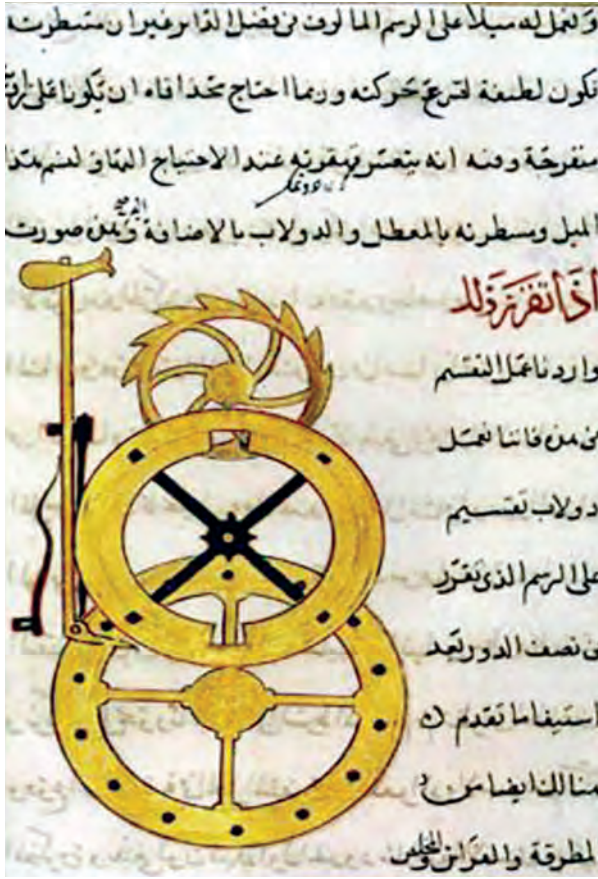 ونعمل له سبلا على الرسم المالوف من فضل الدابر غير ان مسطرته
تكون لطيفة لتسرع حركته وربما احتاج تخذاقاه ان يكونا على
منفرجة ومنه انه يتعسر تهقرته عند الاحتياج
الميل ومسطرته بالمعطل والدولاب بالاضافة وهذه صورته
اذا تقرر ذلك
واردنا عمل التقسيم
من فاننا نعمل
دولاب تقسيم
على الرسم الذى تقرر
فى نصف الدور بعد
استيفا ما تقدم
هنالك ايضا من
لمطرقة والمخلص